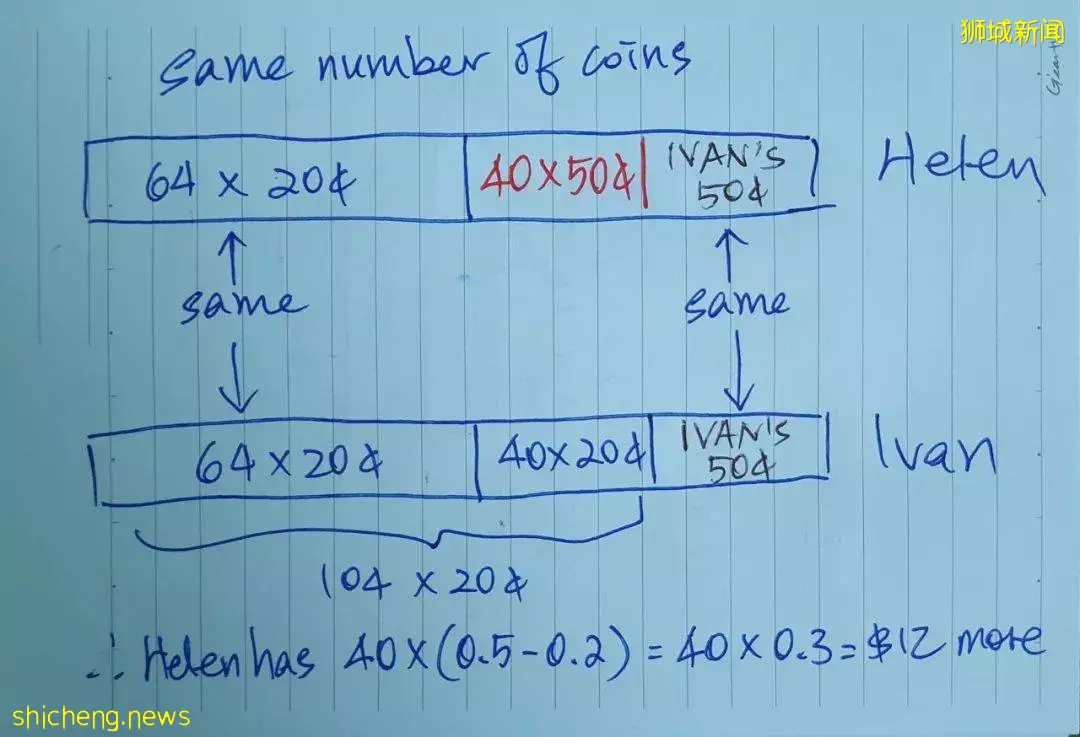 狮城新闻
same number of coins
64 x 20¢ 40x50¢ IVAN'S 50¢ Helen
same same
64 x 20¢ 40x20¢ IVAN'S 50¢ Ivan
104 x 20¢
∴ Helen has 40x(0.5-0.2) = 40 x 0.3 = $12 more
shicheng.news